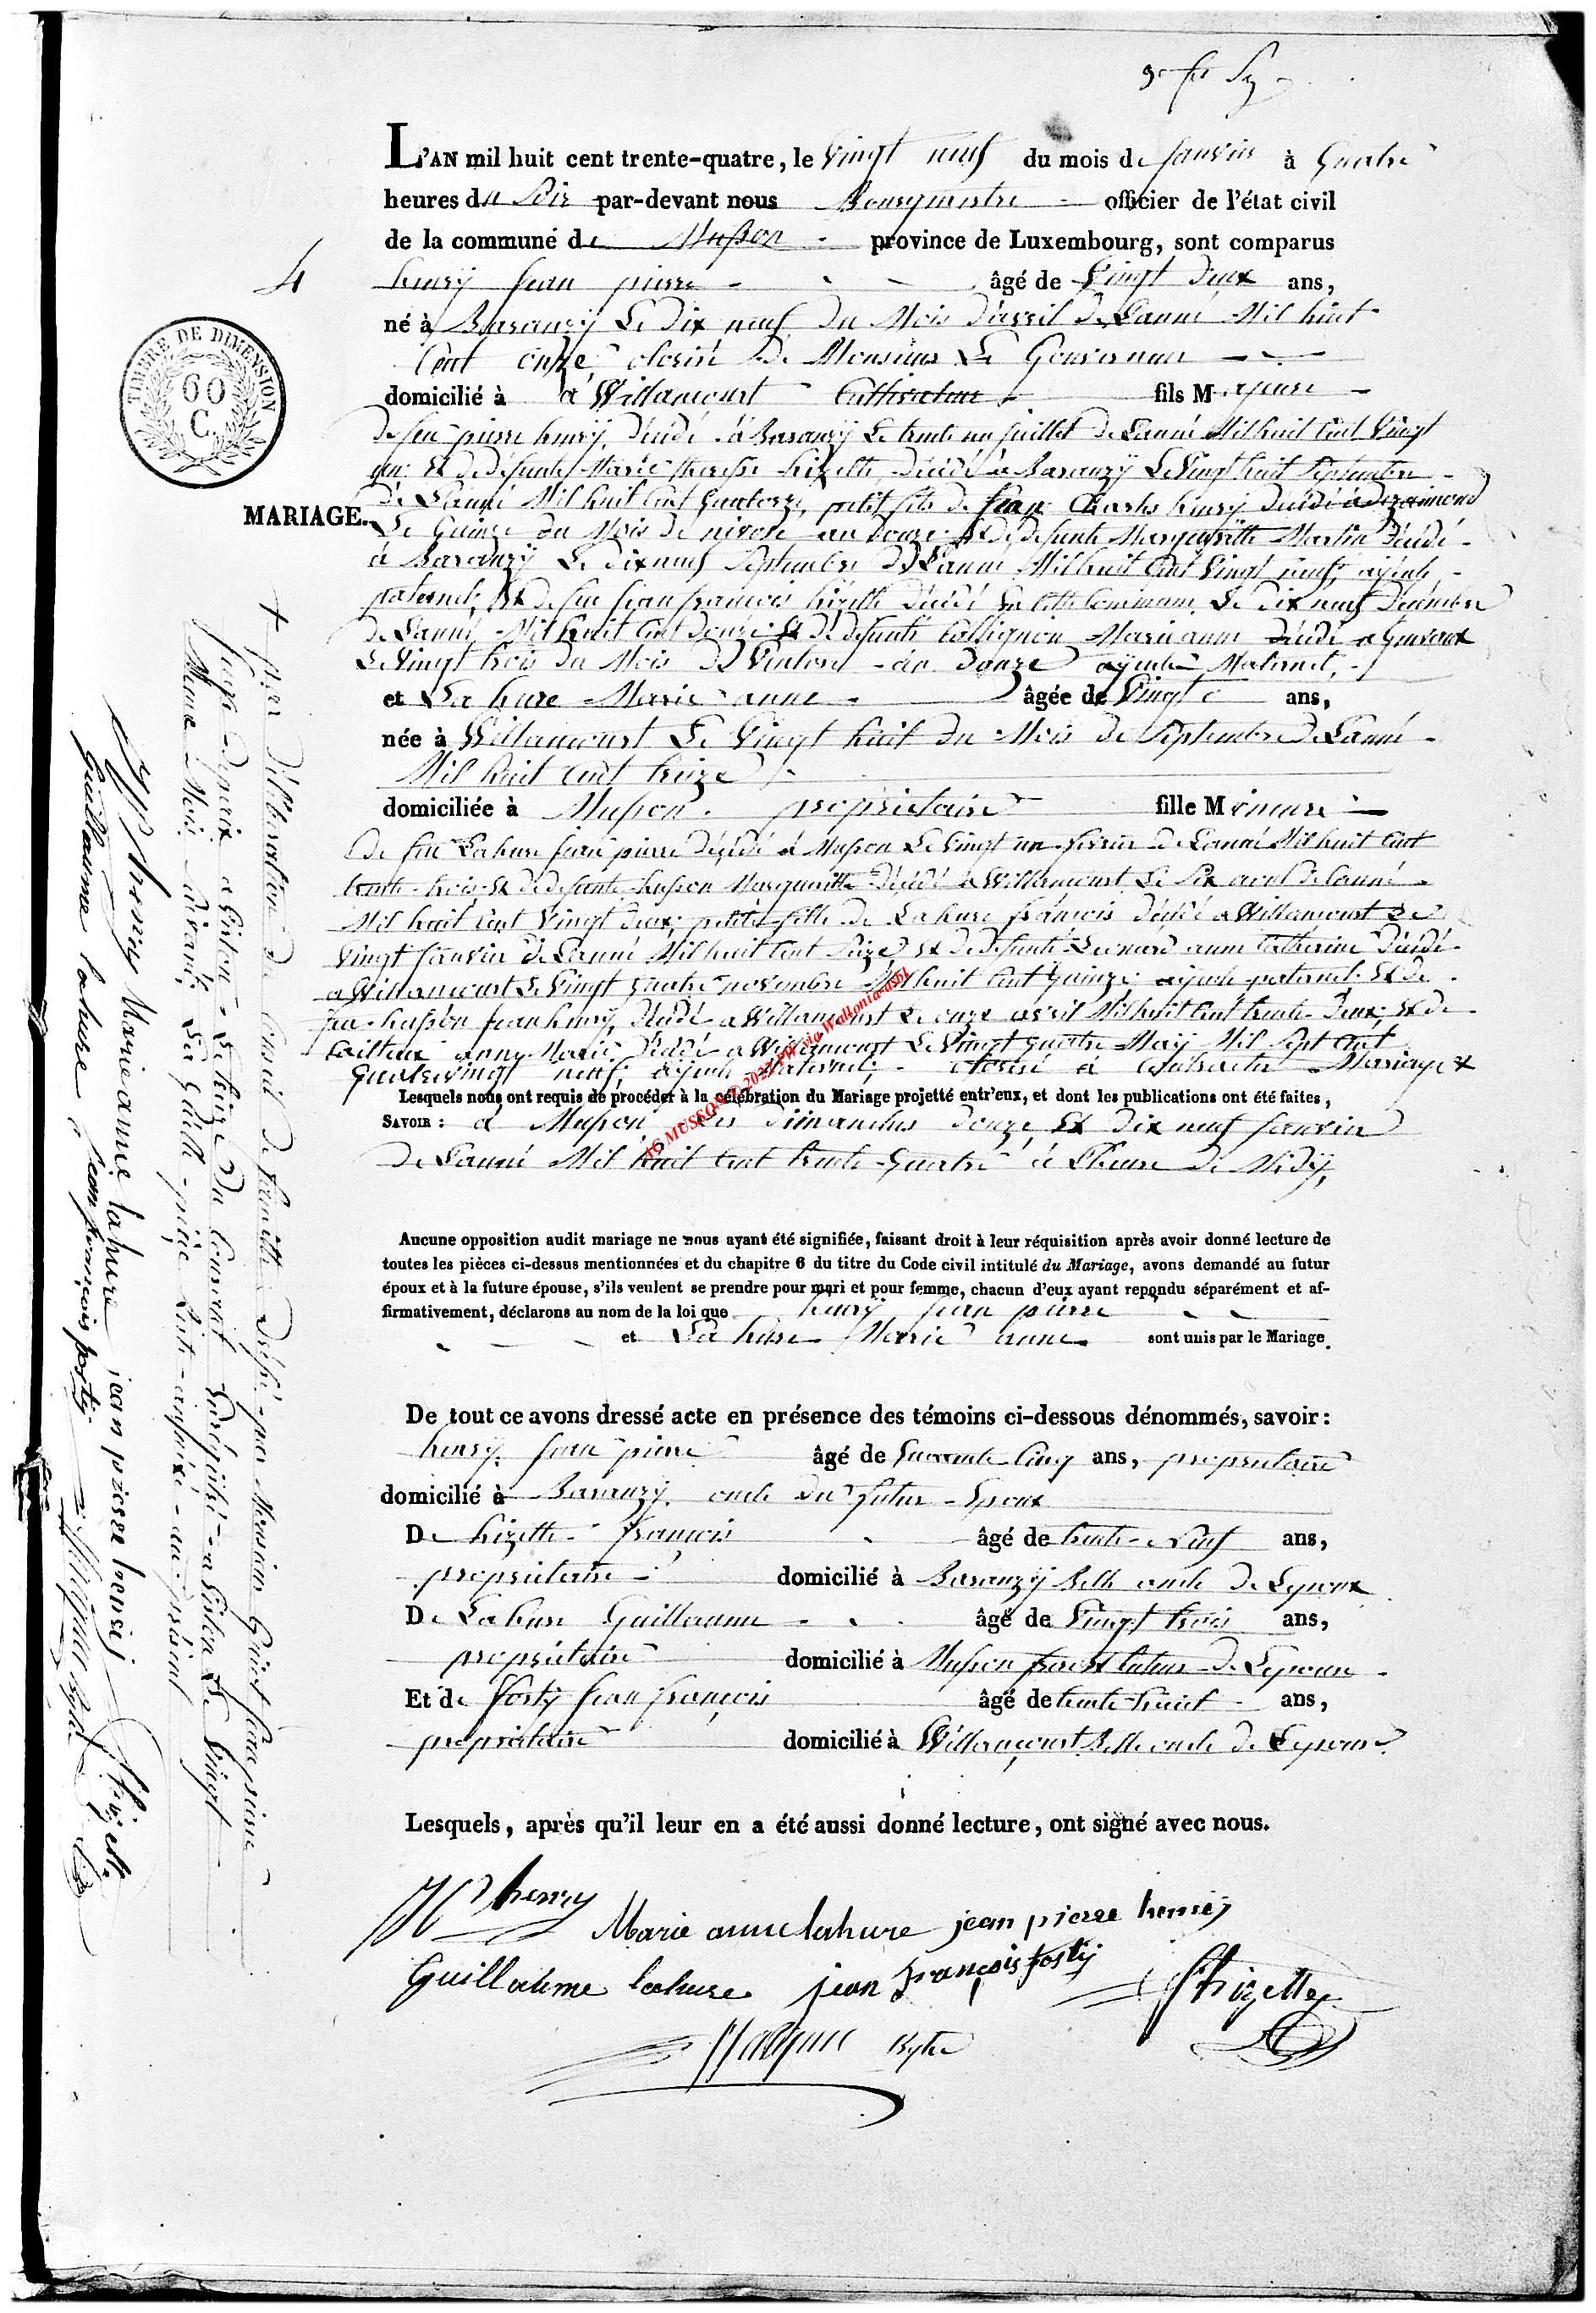 L'AN mil huit cent trente-quatre, le Vingt neuf du mois de janvier à Quatre
heures du Soir par-devant nous Bourgmestre officier de l'état civil
de la commune de Musson province de Luxembourg, sont comparus
4
henrÿ jean pierre âgé de Vingt deux ans,
né à BaranzÿLe dix neuf du Mois d'avril de Lannée Mil huit
Cent onze, de Monsieur Le Gouverneur
domicilié à à Willancourt Cultivateur fils M ajeure
TIMBRE DE DIMENSION
60
C.
de feu pierre henrÿ, décédé à Baranzÿ Le trente un juillet de Lannée Mil huit Cent Vingt
un; Et de défunte Marie theresse hizette, décédé à Baranzÿ Le Vingt huit Septembre
de Lannée Mil huit Cent Quatorze, petit fils de jean Charles henrÿ décédé à
MARIAGE.
Le Quinze du Mois de nivose an douze; Et de defunte Margueritte Martin décédé
à Baranzÿ Le dix neuf Septembre de Lannée Mil huit Cent Vingt neuf, ayeuls
paternels; Et de feu jean francois hizette décédé En Cette Commune Le dix neuf décembre
de Lannée Mil huit Cent douze Et de defunte Collignon Marie anne décédé a
Le Vingt trois du Mois de Ventose an douze ayeuls Maternels,
et La hure Marie anne âgée de Vingt ans,
née à Willancourt Le Vingt huit du Mois de Septembre de Lannée
Mil huit Cent treize
domiciliée à Musson proprietaire fille M ineure
de feu Lahure jean pierre décédé à Musson Le Vingt un fevrier de Lannée Mil huit Cent
trente trois Et de defunte husson Margueritte décédé à Willancourt Le Six avril de Lannée
Mil huit Cent Vingt deux; petite fille de Lahure francois décédé a Willancourt Le
Vingt janvier de Lannée Mil huit Cent Seize Et de defunte anne Catherine décédé
a Willancourt Le Vingt Quatre novembre Mil huit Cent Quinze ayeuls paternels Et de
feu husson jean henrÿ, décédé a Willancourt Le onze avril Mil huit Cent trente deux; Et de
anne Marie décédé a Willancourt Le Vingt Quatre Maÿ Mil Sept Cent
Quatre vingt neuf; ayeuls Maternels; à Contracter Mariage +
AG MUSSON © 2022 PW via Wallonia asbl
Lesquels nous ont requis de procéder à la célébration du Mariage projetté entr'eux, et dont les publications ont été faites,
SAVOIR : a Musson Les dimanches douze Et dix neuf janvier
de Lannée Mil huit Cent trente Quatre à L'heure de Midÿ,
Aucune opposition audit mariage ne nous ayant été signifiée, faisant droit à leur réquisition après avoir donné lecture de
toutes les pièces ci-dessus mentionnées et du chapitre 6 du titre du Code civil intitulé du Mariage, avons demandé au futur
époux et à la future épouse, s'ils veulent se prendre pour mari et pour femme, chacun d'eux ayant repondu séparément et af-
firmativement, déclarons au nom de la loi que henrÿ jean pierre
et La hure Marie anne sont unis par le Mariage.
De tout ce avons dressé acte en présence des témoins ci-dessous dénommés, savoir :
henrÿ jean pierre âgé de Quarante Cinq ans, proprietaire
domicilié à Baranzÿ oncle du futur Epoux
De hizette francois âgé de trente neuf ans,
proprietaire domicilié à Baranzÿ Belle oncle de Lepoux
De Lahure Guillaume âgé de Vingt trois ans,
proprietaire domicilié à Musson frere de Lepouse
Et de fostÿ jean françois âgé de trente huit ans,
proprietaire domicilié à Willancourt Belle oncle de Lepouse
Lesquels, après qu'il leur en a été aussi donné lecture, ont signé avec nous.
henry
Marie anne lahure jean pierre henrij
Guillaume lahure jean françois fostij hizette
+ par déliberation du Conseil de famille par Monsieur jean pierre
juge de paix a Virton Le treize du Courant Enrégistré a Virton Le Vingt
Même Mois
henry Marie anne lahure jean pierre henrij hizette
Guillaume lahure jean françois fostij